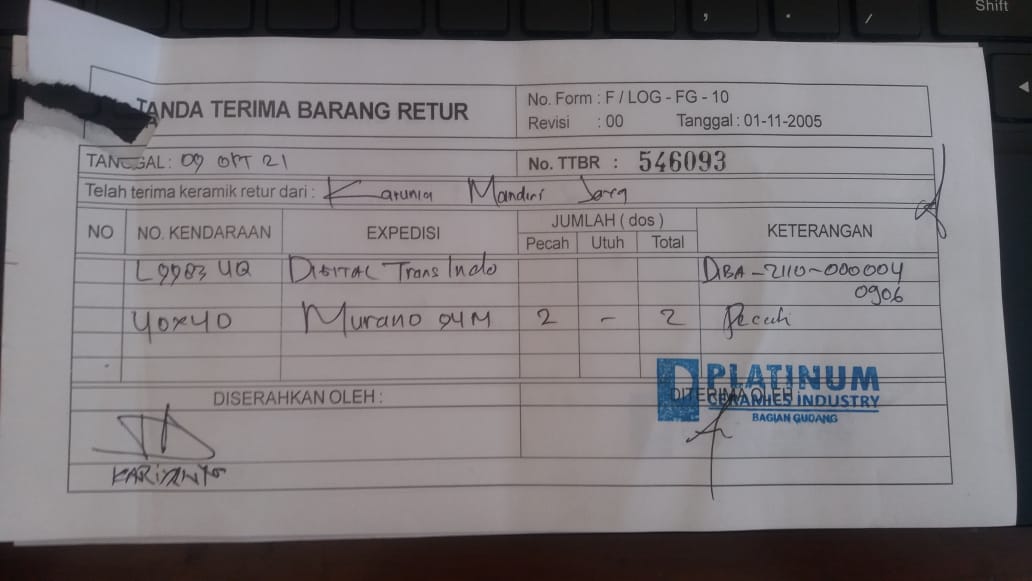 TANDA TERIMA BARANG RETUR
No. Form : F / LOG - FG - 10
Revisi : 00 Tanggal : 01-11-2005
TANGGAL : 09 OKT 21
No. TTBR : 546093
Telah terima keramik retur dari : Karunia Mandiri Jaya
NO NO. KENDARAAN EXPEDISI JUMLAH ( dos ) KETERANGAN
Pecah Utuh Total
L 9983 UQ DIGITAL Trans Indo DBA - 2110 - 000004
0906
40x40 Murano 04M 2 - 2 Pecah
DISERAHKAN OLEH : DITERIMA OLEH
PLATINUM
CERAMICS INDUSTRY
BAGIAN GUDANG
KARIYANTO
Shift